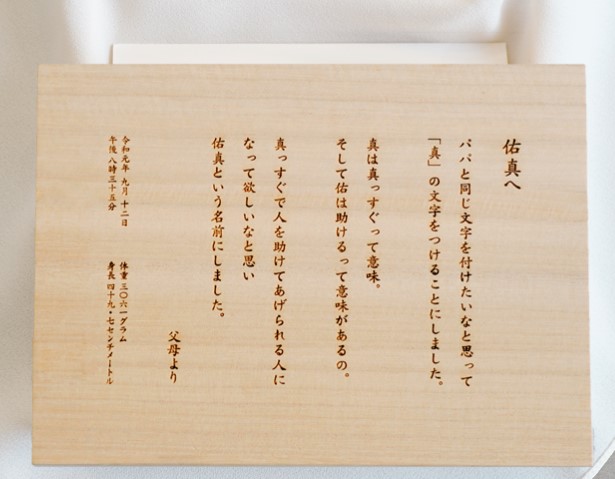 佑真へ
パパと同じ文字を付けたいなと思って
「真」の文字をつけることにしました。
真は真っすぐって意味。
そして佑は助けるって意味があるの。
真っすぐで人を助けてあげられる人に
なって欲しいなと思い
佑真という名前にしました。
父母より
令和元年 九月 十二日
午後 八時 三十五分
体重 三〇六一グラム
身長 四十九・七センチメートル